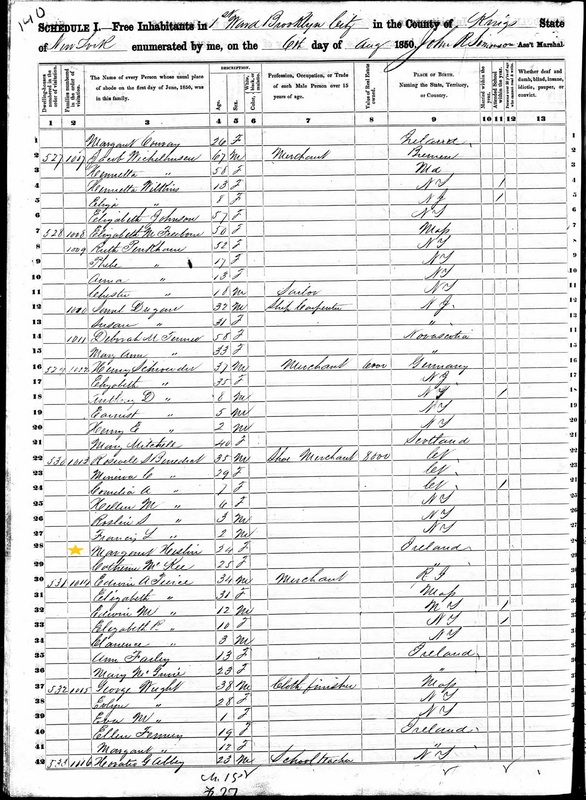 140
SCHEDULE I.—Free Inhabitants in 1st Ward Brooklyn City in the County of Kings State
of New York enumerated by me, on the 6th day of Aug 1850. John R. Ass't Marshal.
Dwelling-houses numbered in the order of visitation.
Families numbered in the order of visitation.
The Name of every Person whose usual place of abode on the first day of June, 1850, was in this family.
DESCRIPTION.
Age.
Sex.
White, black, or mulatto.
Color,
Profession, Occupation, or Trade of each Male Person over 15 years of age.
Value of Real Estate owned.
PLACE OF BIRTH. Naming the State, Territory, or Country.
Married within the year.
Attended School within the year.
Whether deaf and dumb, blind, insane, idiotic, pauper, or convict.
1 2 3 4 5 6 7 8 9 10 11 12 13
1 Margaret Conway 26 F Ireland
2 527 1007 Jacob 67 M Merchant Bremen
3 Henrietta " 58 F Md
4 Henrietta Wilkins 13 F NY 1
5 Eliza " 8 F NJ 1
6 Elizabeth Johnson 57 F NY
7 528 1008 Elizabeth M 50 F Mass
8 1009 Ruth Pinkham 52 F NY
9 Phebe " 17 F NY
10 Anna " 13 F NY
11 " 18 M Sailor NY
12 1010 Dugan 32 M Ship Carpenter NJ
13 Susan " 31 F "
14 1011 Deborah M 58 F Novascotia
15 Mary Ann " 33 F "
16 529 1012 Henry Schroeder 37 M Merchant 6000 Germany
17 Elizabeth " 35 F NJ
18 D " 8 M NY 1
19 Earnest " 5 M NY
20 Henry E " 2 M NY
21 Mary Mitchell 40 F Scotland
22 530 1013 S Benedict 35 M Shoe Merchant 8000 Ct
23 Minerva C " 29 F Ct
24 Cornelia A " 7 F Ct 1
25 Hellen M " 6 F NY
26 S " 3 M NY
27 Francis L " 2 M NY
28 Margaret Heslin 24 F Ireland
29 Catherine McKee 25 F "
30 531 1014 Edwin A 34 M Merchant R I
31 Elizabeth " 31 F Mass
32 Edwin M " 12 M NY 1
33 Elizabeth P " 10 F NY 1
34 Clarence " 3 M NY
35 Ann Farley 13 F Ireland
36 Mary McGuire 23 F "
37 532 1015 George Wright 38 M Cloth finisher Mass
38 " 28 F NY
39 M " 1 F NY
40 Ellen 19 F Ireland
41 Margaret " 12 F "
42 533 1016 Horatio G Abby 23 M School Teacher NY